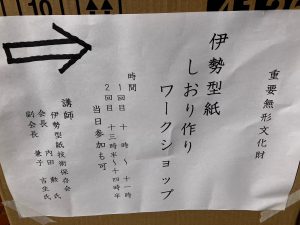 重要無形文化財
伊勢型紙
しおり作り
ワークショップ
時間
1回目 十時〜十一時
2回目 十三時半〜十四時半
当日参加も可
講師
伊勢型紙技術保存会
会長 内田 勲氏
副会長 兼子 吉生氏